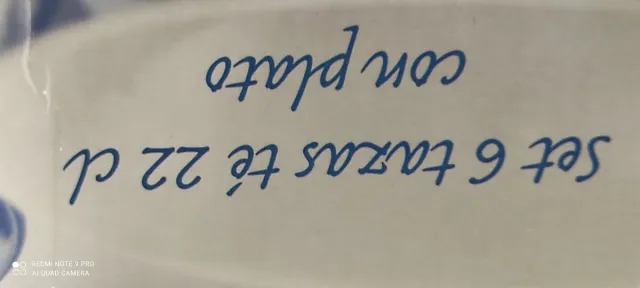 Set 6 tazas té 22 cl
con plato
REDMI NOTE 9 PRO
AI QUAD CAMERA